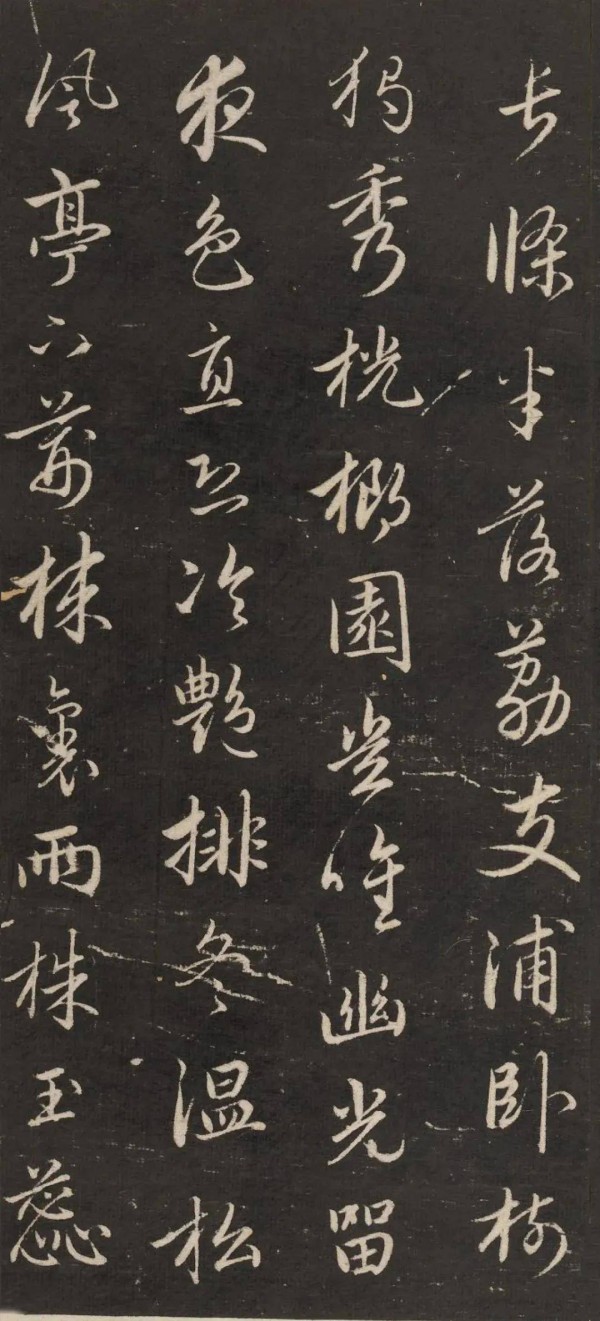 長條半落荔支浦卧樹
獨秀桄榔園豈唯幽光留
夜色直恐冷艷排冬温松
風亭下荊棘裏兩株玉蕊